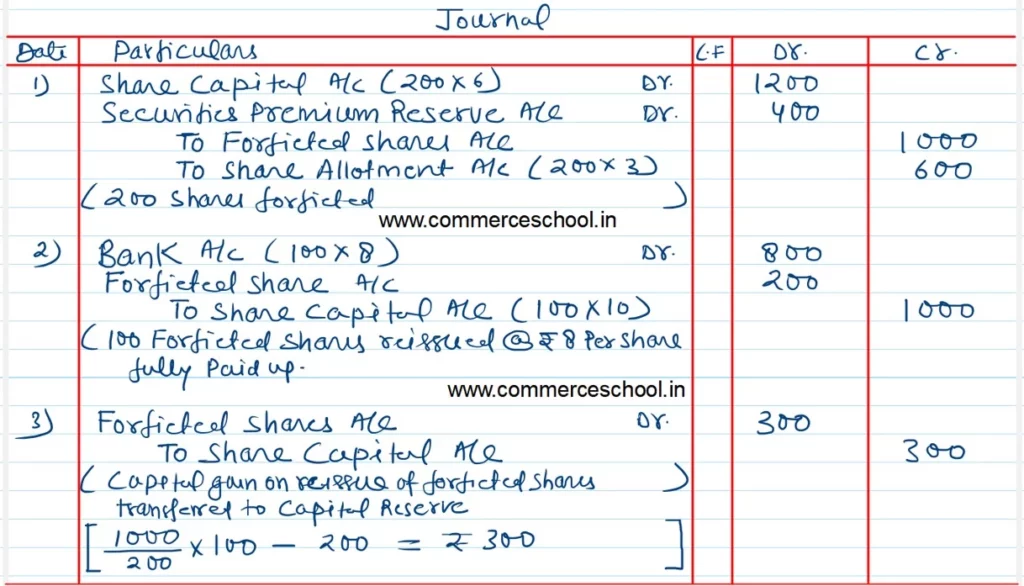 Journal
Date Particulars L.F Dr. Cr.
1) Share Capital A/c (200 × 6) Dr. 1200
Securities Premium Reserve A/c Dr. 400
To Forficted shares A/c 1000
To Share Allotment A/c (200 × 3) 600
(200 Shares forficted)
www.commerceschool.in
2) Bank A/c (100 × 8) Dr. 800
Forficted share A/c 200
To Share Capital A/c (100 × 10) 1000
(100 Forficted Shares reissued @ ₹ 8 Per share
fully Paid up.
www.commerceschool.in
3) Forficted shares A/c Dr. 300
To Share Capital A/c 300
(Capital gain on reissue of forficted shares)
transferred to Capital Reserve
[1000/200 × 100 - 200 = ₹ 300]